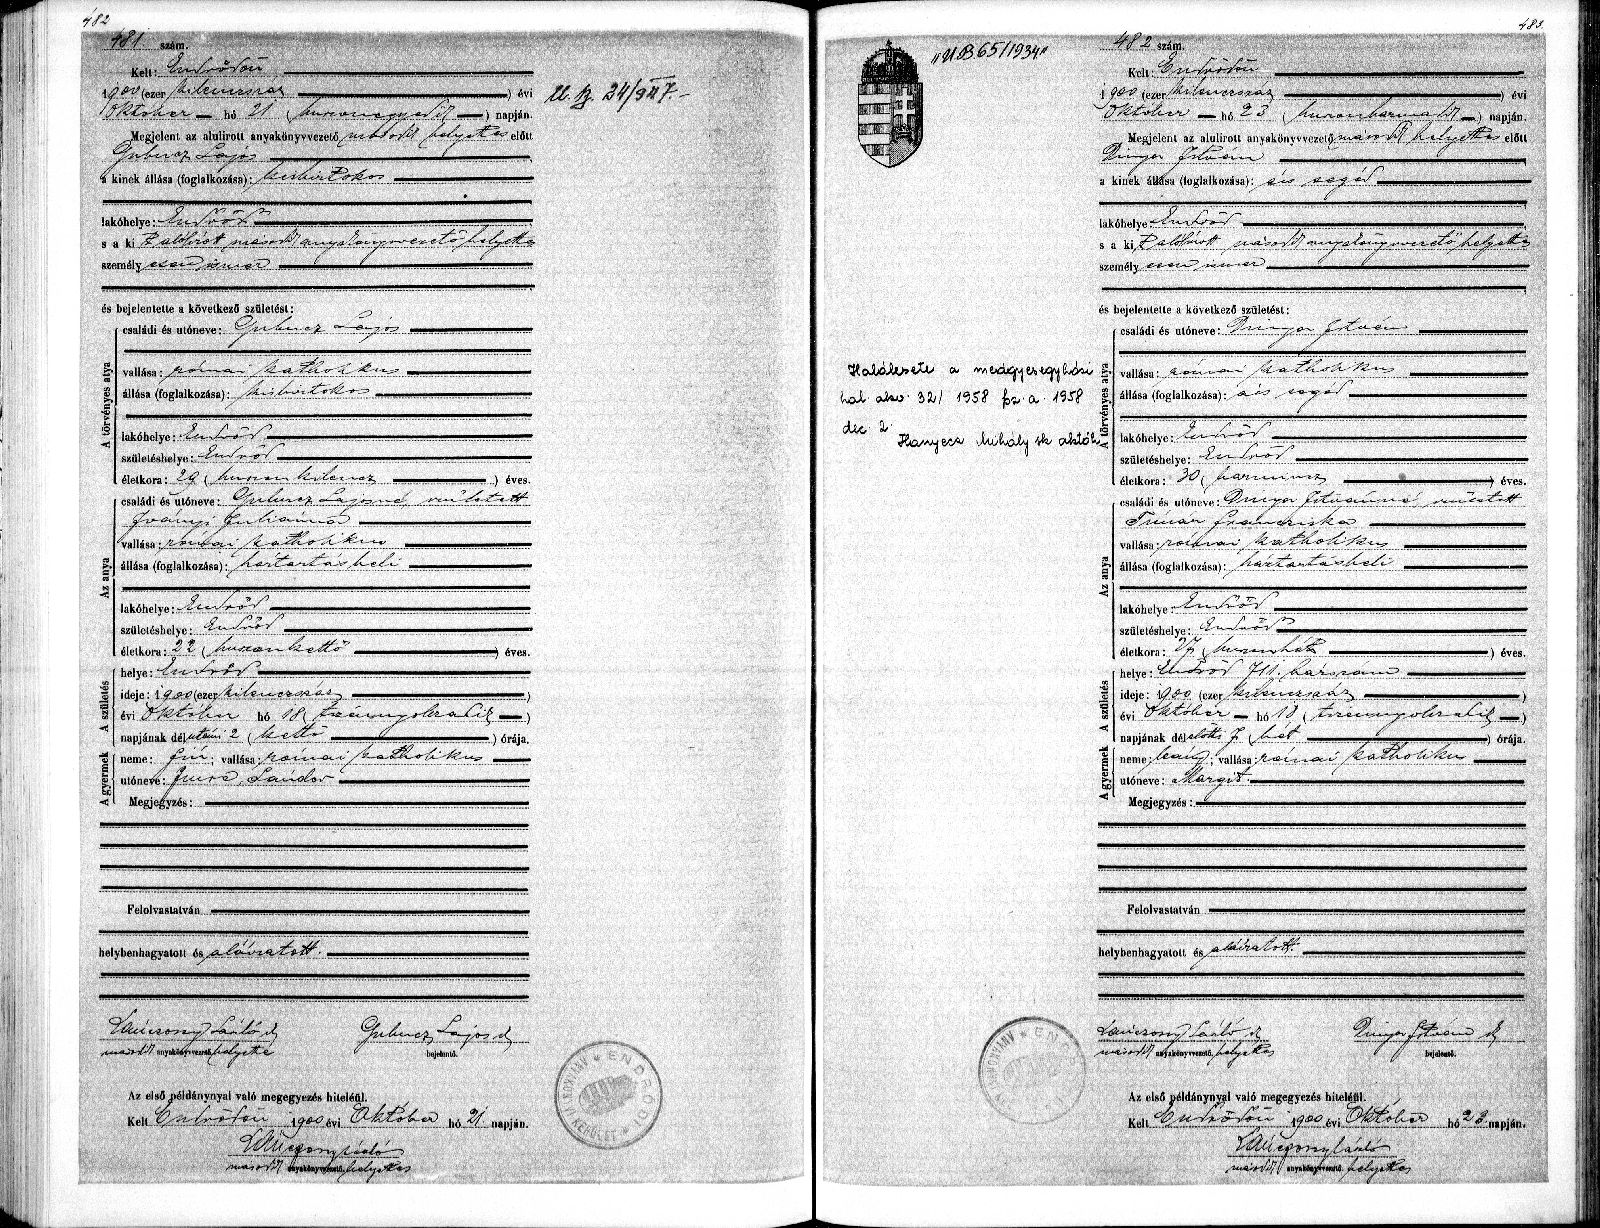 482
481 szám.
Kelt: Endrődön
1900 (ezer kilenczszáz) évi
Október hó 21 (huszonegyedik) napján.
Megjelent az alulirott anyakönyvvezető másodk helyettes előtt
Gubucz Lajos
a kinek állása (foglalkozása): kisbirtokos
lakóhelye: Endrőd
s a kit alólirott másodk anyakönyvvezető helyettes
személyesen ismer
és bejelentette a következő születést:
A törvényes atya
családi és utóneve: Gubucz Lajos
vallása: római katholikus
állása (foglalkozása): kisbirtokos
lakóhelye: Endrőd
születéshelye: Endrőd
életkora: 29 (huszonkilencz) éves.
Az anya
családi és utóneve: Gubucz Lajosné, született
Iványi Juliánna
vallása: római katholikus
állása (foglalkozása): háztartásbeli
lakóhelye: Endrőd
születéshelye: Endrőd
életkora: 22 (huszonkettő) éves.
A születés
helye: Endrőd
ideje: 1900 (ezer kilenczszáz)
évi Október hó 18 (tizennyolczadik)
napjának délutáni 2 (kettő) órája.
A gyermek
neme: fiú; vallása: római katholikus
utóneve: Imre, Sándor
Megjegyzés:
Felolvastatván
helybenhagyatott és aláiratott.
Lánczsony László
Gubucz Lajos
másodk anyakönyvvezető helyettes
bejelentő.
ENDRŐDI ANYAKÖNYVI KERÜLET
Az első példánynyal való megegyezés hiteléül.
Kelt Endrődön 1900 évi Október hó 21 napján.
másodk anyakönyvvezető helyettes
483
"U.B 65/1934"
482 szám.
Kelt: Endrődön
1900 (ezer kilenczszáz) évi
Október hó 23 (huszonharmadik) napján.
Megjelent az alulirott anyakönyvvezető másodk helyettes előtt
Dinya István
a kinek állása (foglalkozása): ács segéd
lakóhelye: Endrőd
s a kit alólirott másodk anyakönyvvezető helyettes
személyesen ismer
és bejelentette a következő születést:
A törvényes atya
családi és utóneve: Dinya István
vallása: római katholikus
állása (foglalkozása): ács segéd
lakóhelye: Endrőd
születéshelye: Endrőd
életkora: 30 (harmincz) éves.
Halálesete a medgyesegyházi
hal akv. 32/1958 fsz. a. 1958
dec 2.
Hanyecz Mihály sk
Az anya
családi és utóneve: Dinya Istvánné, született
Timár Francziska
vallása: római katholikus
állása (foglalkozása): háztartásbeli
lakóhelye: Endrőd
születéshelye: Endrőd
életkora: 27 (huszonhét) éves.
A születés
helye: Endrőd 711. házszám
ideje: 1900 (ezer kilenczszáz)
évi Október hó 18 (tizennyolczadik)
napjának délelőtti 7 (hét) órája.
A gyermek
neme: leány; vallása: római katholikus
utóneve: Margit.
Megjegyzés:
Felolvastatván
helybenhagyatott és aláiratott.
Dinya István
másodk anyakönyvvezető helyettes
bejelentő.
Az első példánynyal való megegyezés hiteléül.
Kelt Endrődön 1900 évi Október hó 23 napján.
másodk anyakönyvvezető helyettes